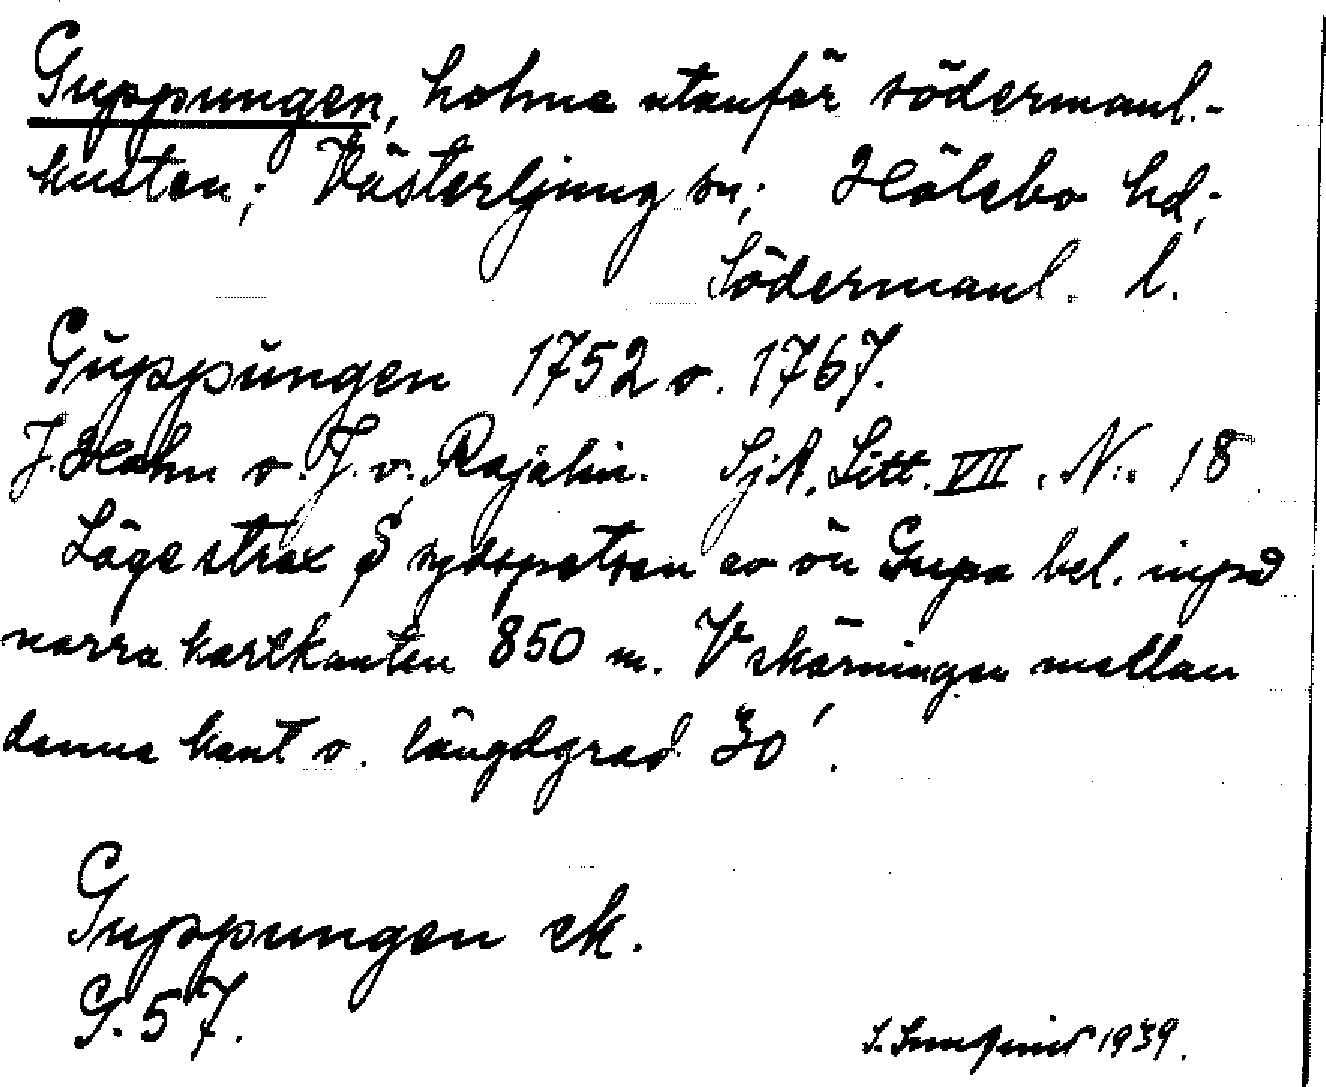 Guppungen, holme utanför södermanl.-
kusten; Västerljung sn; Hölebo hd;
Södermanl. l.
Gŭppŭngen 1752 o. 1767.
J. Hahn o. J. v. Rajalin. SjA. Litt. VII. N:. 18
Läge strax S sydspetsen av ön Gupa bel. invid
norra kartkanten 850 m. V skärningen mellan
denna kant o. längdgrad 30'.
Guppungen ek.
G. 57.
1939.